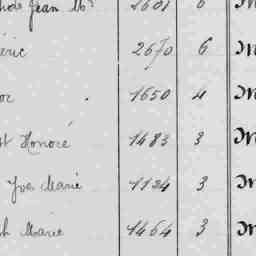 Jean M^e 2601 6
éric 2670 6
or 1650 4
st Honoré 1483 3
Yves Marie 1124 3
ph Marie 1464 3